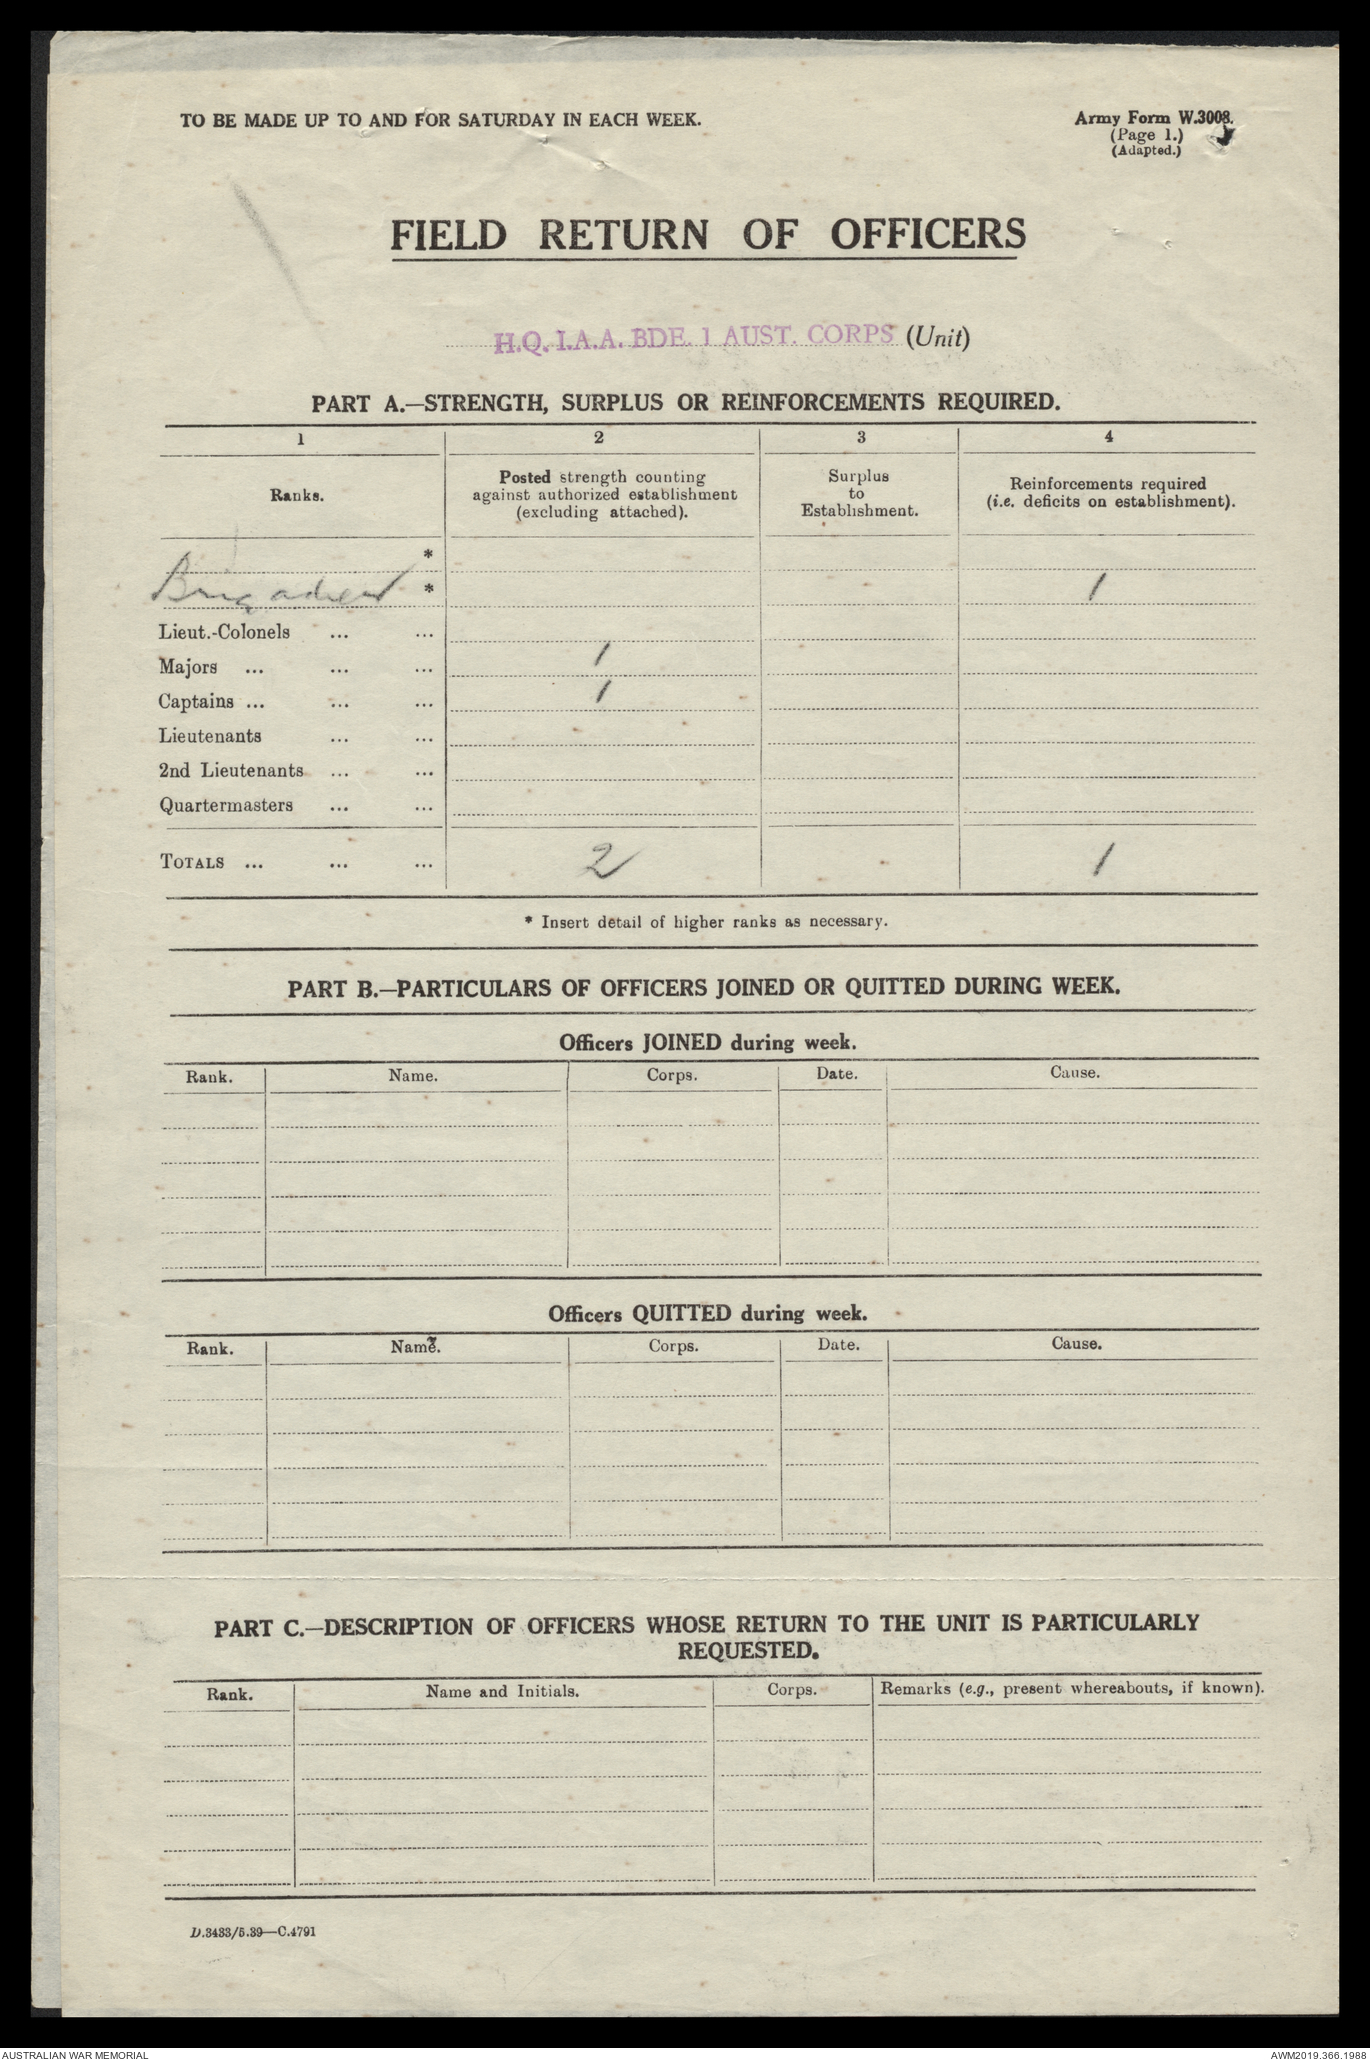 TO BE MADE UP TO AND FOR SATURDAY IN EACH WEEK.
Army Form W.3008.
(Page 1.)
(Adapted.)
FIELD RETURN OF OFFICERS
H.Q. I.A.A. BDE. 1 AUST. CORPS (Unit)
PART A.—STRENGTH, SURPLUS OR REINFORCEMENTS REQUIRED.
1 2 3 4
Ranks.
Posted strength counting
against authorized establishment
(excluding attached).
Surplus
to
Establishment.
Reinforcements required
(i.e. deficits on establishment).
*
Brigadier * 1
Lieut.-Colonels ... ...
Majors ... ... ... 1
Captains ... ... ... 1
Lieutenants ... ...
2nd Lieutenants ... ...
Quartermasters ... ...
TOTALS ... ... ... 2 1
* Insert detail of higher ranks as necessary.
PART B.—PARTICULARS OF OFFICERS JOINED OR QUITTED DURING WEEK.
Officers JOINED during week.
Rank. Name. Corps. Date. Cause.
Officers QUITTED during week.
Rank. Name. Corps. Date. Cause.
PART C.—DESCRIPTION OF OFFICERS WHOSE RETURN TO THE UNIT IS PARTICULARLY
REQUESTED.
Rank. Name and Initials. Corps. Remarks (e.g., present whereabouts, if known).
D.3433/5.39—C.4791
AUSTRALIAN WAR MEMORIAL
AWM2019.366.1988